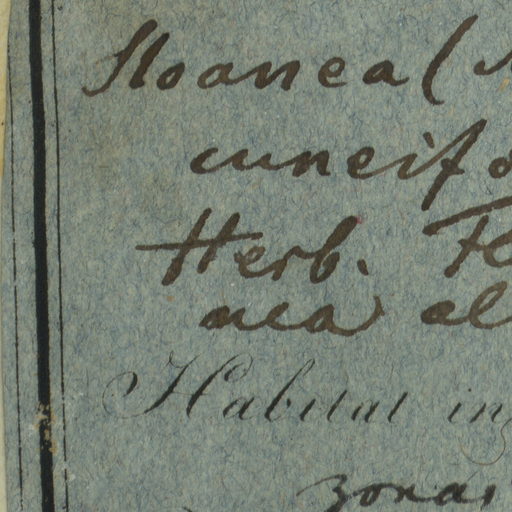 Sloanea (
cuneifo
Herb. Fl
aea al
Habitat in
zonas